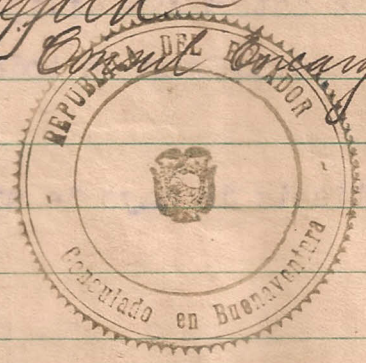 Consul Encarg
REPUBLICA DEL ECUADOR
Consulado en Buenaventura